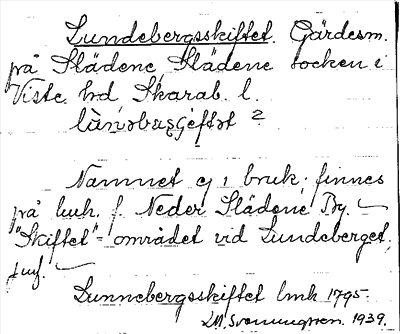 Lundebergsskiftet. Gärdesm.
på Slädene, Slädene socken i
Viste hd Skarab. l.
2
Namnet ej i bruk; finnes
på huk. f. Neder Slädene By.
"Skiftet" = området vid Lundeberget,
Lunnebergsskiftet lmk 1795.
1939.